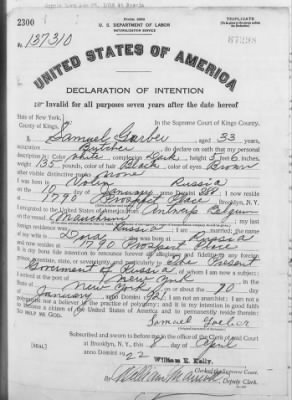 2300
U. S. DEPARTMENT OF LABOR
NATURALIZATION SERVICE
TRIPLICATE
No. 137310
UNITED STATES OF AMERICA
DECLARATION OF INTENTION
Invalid for all purposes seven years after the date hereof
State of New York,
County of Kings,
In the Supreme Court of Kings County.
I, Samuel Garber, aged 33 years,
occupation Butcher, do declare on oath that my personal
description is: Color white, complexion Dark, height 5 feet 6 inches,
weight 135 pounds, color of hair Black, color of eyes Brown
other visible distinctive marks None
I was born in Russia
on the 10 day of January, anno Domini; I now reside
at 1790 Prospect Place, Brooklyn, N.Y.
I emigrated to the United States of America from Antwerp Belgium
on the vessel; my last
foreign residence was Russia; I am married; the name
of my wife is; she was born at Russia
and now resides at 1790 Prospect Place
It is my bona fide intention to renounce forever all allegiance and fidelity to any foreign
prince, potentate, state, or sovereignty, and particularly to The Present
Government of Russia, of whom I am now a subject;
I arrived at the port of New York, in the
State of New York, on or about the 10 day
of January, anno Domini 1921; I am not an anarchist; I am not a
polygamist nor a believer in the practice of polygamy; and it is my intention in good faith
to become a citizen of the United States of America and to permanently reside therein:
SO HELP ME GOD.
Samuel
Subscribed and sworn to before me in the office of the Clerk of said Court
at Brooklyn, N.Y., this 8 day of April
anno Domini 1922
[SEAL]
William E. Kelly,
Clerk of the Supreme Court.
By, Deputy Clerk.